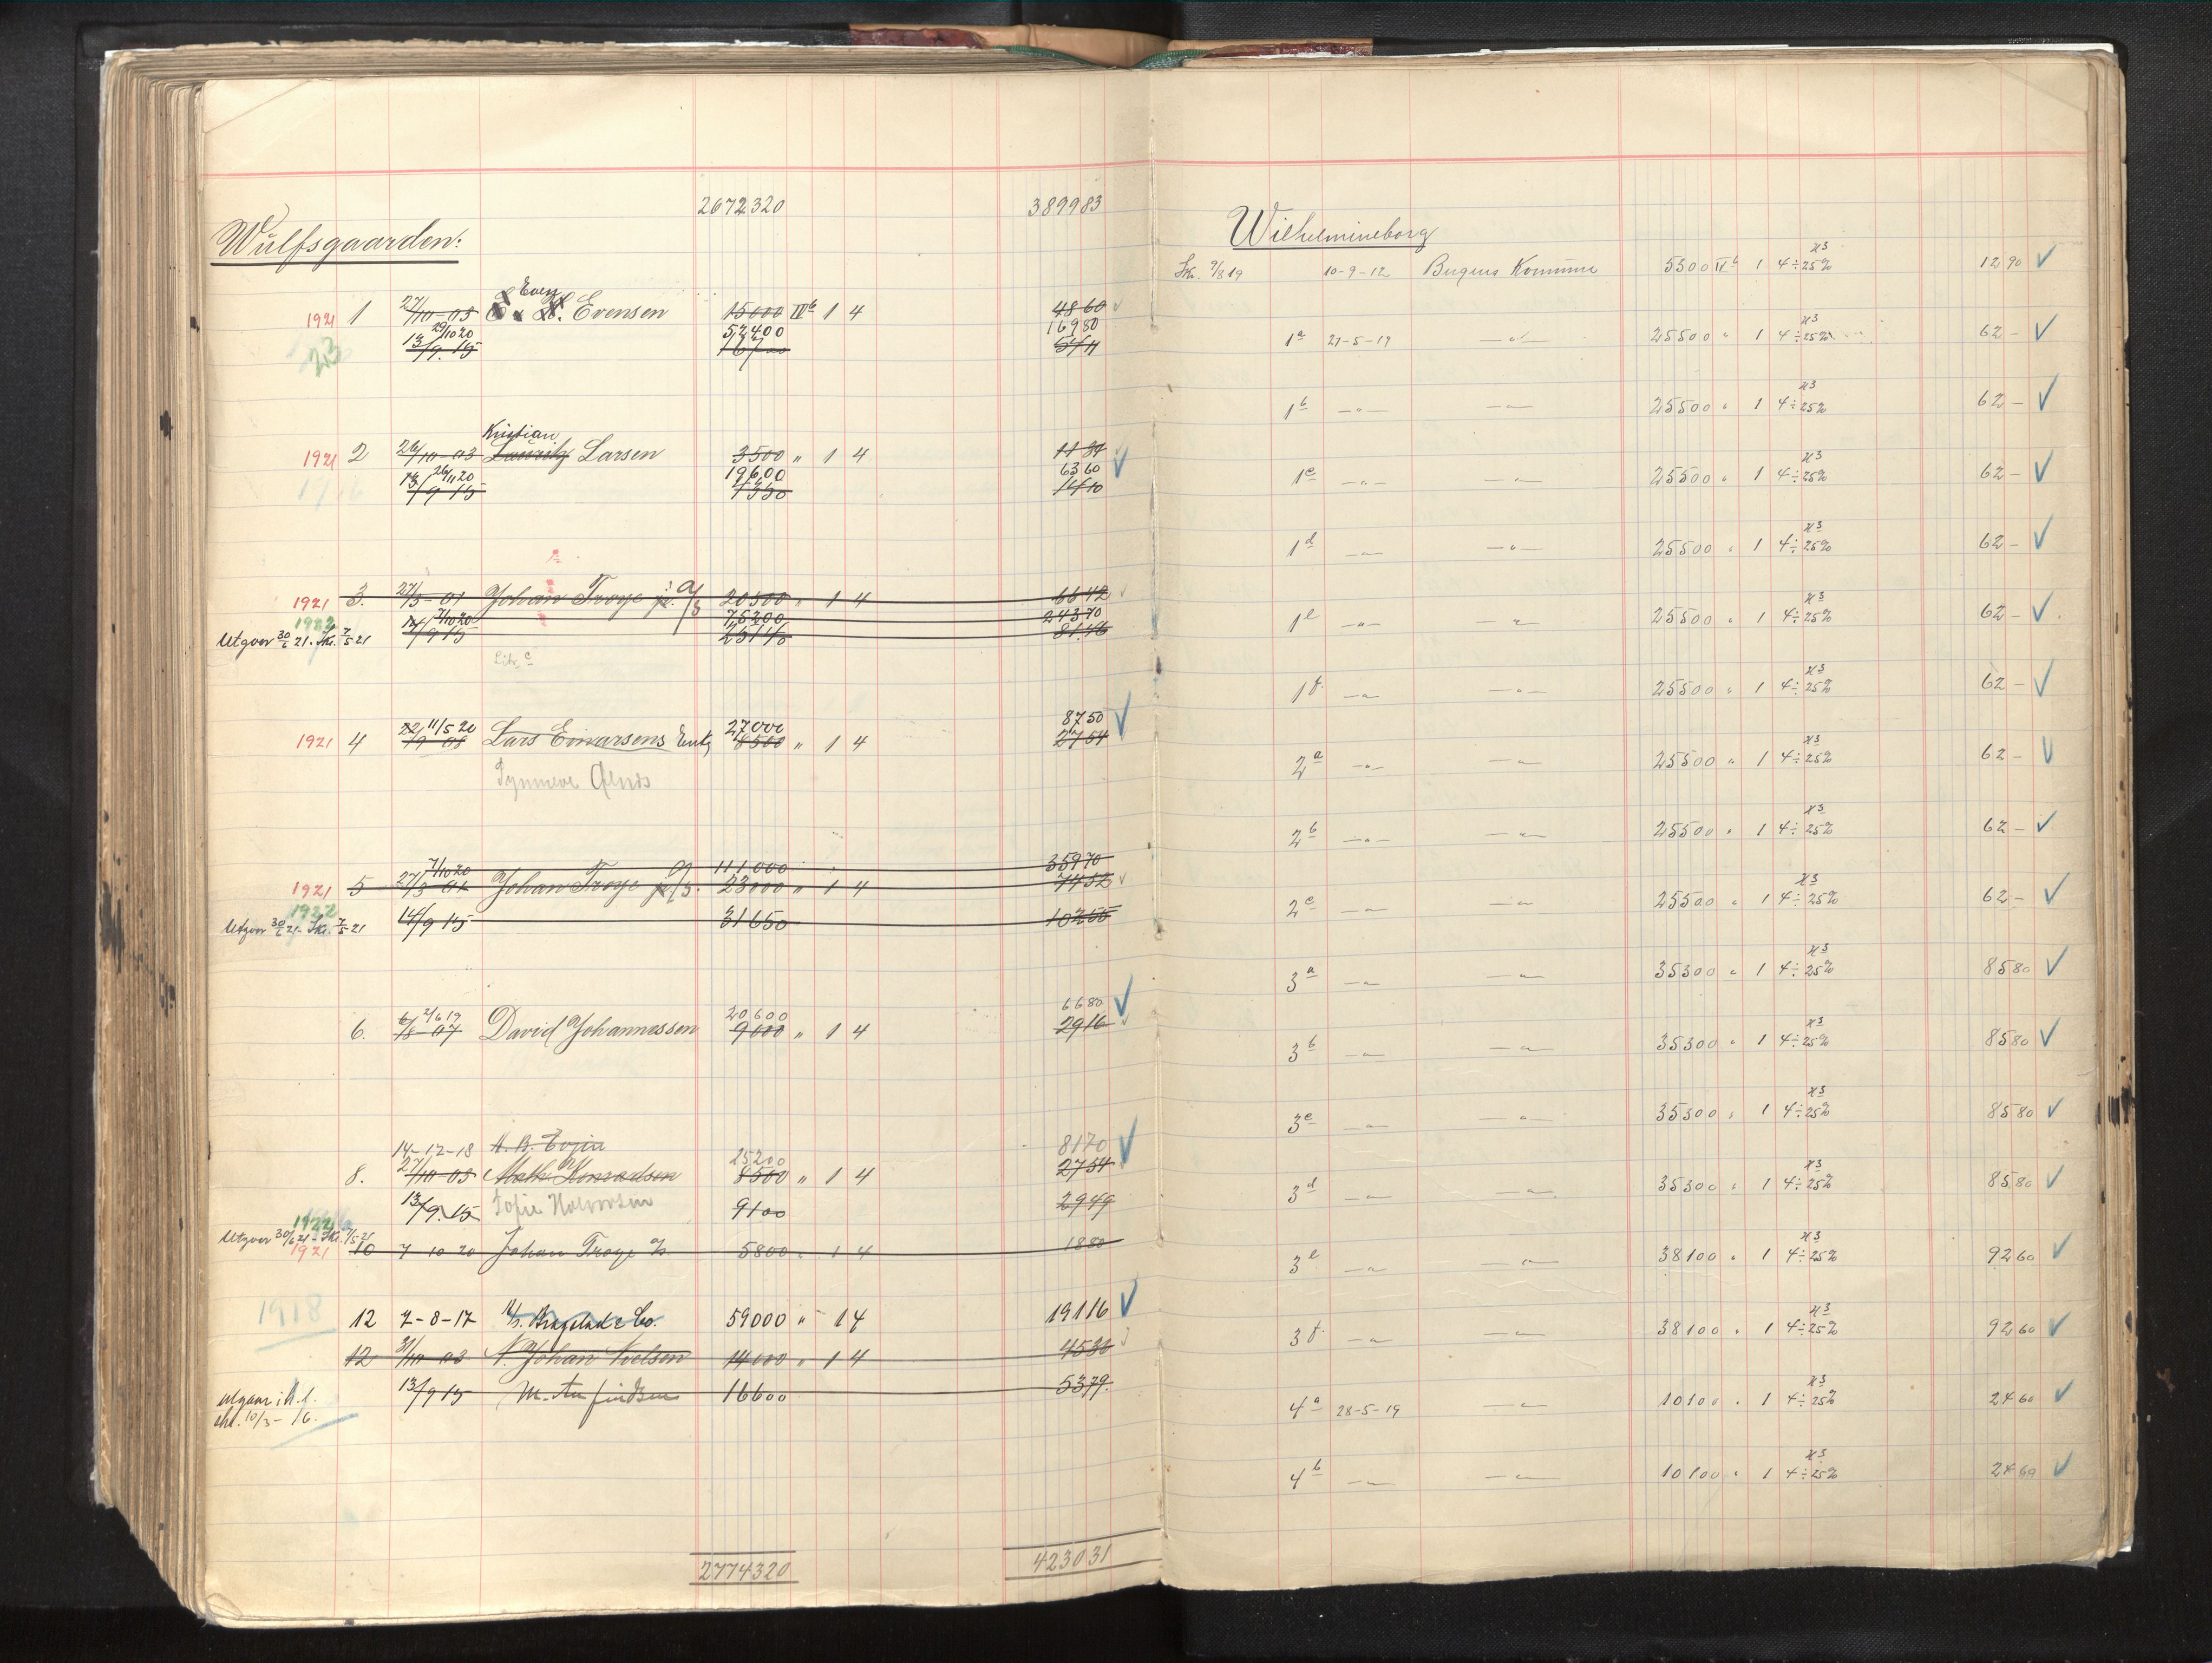 2672320 389983
Wulfsgaarden:
Even
1921 1 27/10-03 Evensen 15000 IIb 1 4 4860
23 29/10 20 52400 16980
13/9.15 16700 5411
Kristian
1921 2 26/10-03 Lauritz Larsen 3500 " 1 4 1134
26/11 20 19600 6360
13/9 15 4350 1410
1921 3. 27/3-01 Johan Troye jr. A/S 20500 " 1 4 6642
1922 7/10 20 75200 24370
Utgaar 30/6 21. Skr. 7/5 21 14/9 15 25140 8146
Litr. c
11/5 20 27000 8750
1921 4 22/9 08 Lars Einarsens Enke 8500 " 1 4 2754
Synneve
7/10 20 111000 35970
1921 5 27/3 01 Johan Troye jr A/S. 23000 " 1 4 7452
1922
Utgaar 30/6 21. Skr. 7/5 21 14/9 15 31650 10255
2/6 19 20600 6680
6. 6/8-07 David Johannessen 9000 " 1 4 2916
14-12-18 25200 8170
8. 27/10-03 Math Konradsen 8500 " 1 4 2754
13/9.15 Sofie Halvorsen 9100 2949
1922
Utgaar 30/6 21 - Skr. 7/5 21
1921 10 7 10 20 Johan Troye A/S 5800 " 1 4 1880
1918 12 7-8-17 A/S. Bragstad & Co. 59000 " - 1 4 19116
12 31/10-03 N. Johan Nielsen 14000 " 1 4 4536
utgaar i h.t. 13/9 15 16600 5379.
skr. 10/3-16.
2774320 423031
Wilhelmineborg
Skr. 9/8 19 10-9-12 Bergens Kommune 5300 IIb 1 4 ÷ 25% H3 1290 ✓
1a 27-5-19 —"— 25500 " 1 4 ÷ 25% H3 62 - ✓
1b —"— —"— 25500 " 1 4 ÷ 25% H3 62 - ✓
1c —"— —"— 25500 " 1 4 ÷ 25% H3 62 - ✓
1d —"— —"— 25500 " 1 4 ÷ 25% H3 62 - ✓
1e —"— —"— 25500 " 1 4 ÷ 25% H3 62 - ✓
1f. —"— —"— 25500 " 1 4 ÷ 25% H3 62 - ✓
2a —"— —"— 25500 " 1 4 ÷ 25% H3 62 - ✓
2b —"— —"— 25500 " 1 4 ÷ 25% H3 62 - ✓
2c —"— —"— 25500 " 1 4 ÷ 25% H3 62 - ✓
3a —"— —"— 35300 " 1 4 ÷ 25% H3 8580 ✓
3b —"— —"— 35300 " 1 4 ÷ 25% H3 8580 ✓
3c —"— —"— 35300 " 1 4 ÷ 25% H3 8580 ✓
3d —"— —"— 35300 " 1 4 ÷ 25% H3 8580 ✓
3e —"— —"— 38100 " 1 4 ÷ 25% H3 9260 ✓
3f. —"— —"— 38100 " 1 4 ÷ 25% H3 9260 ✓
4a 28-5-19 —"— 10100 " 1 4 ÷ 25% H3 2460 ✓
4b —"— —"— 10100 " 1 4 ÷ 25% H3 2460 ✓